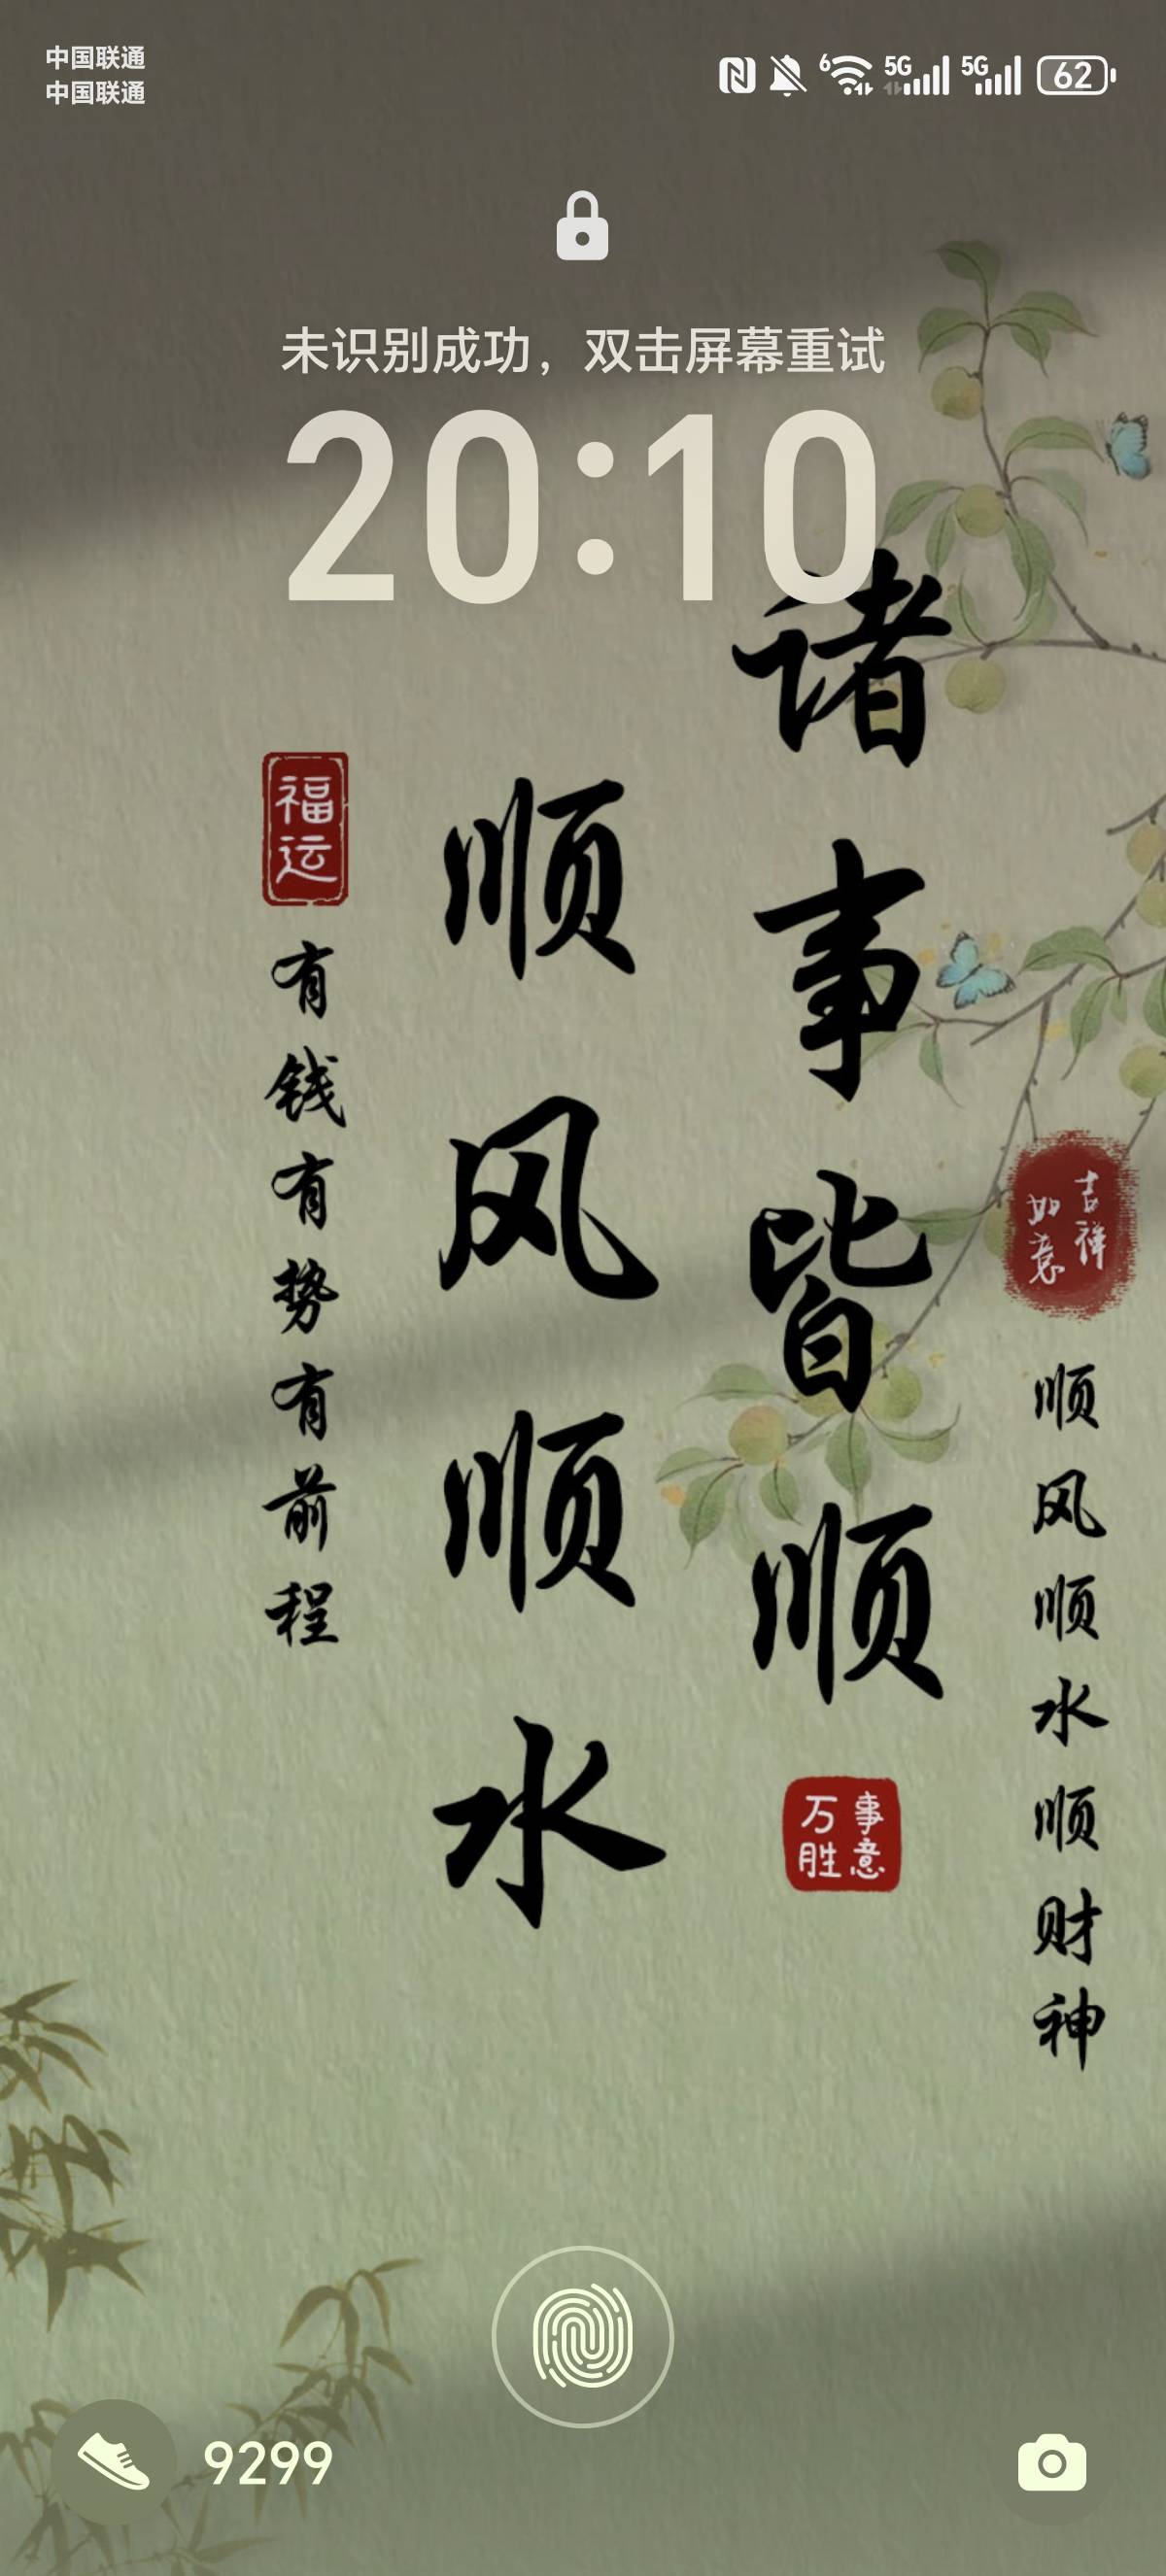 中国联通
中国联通
6 5G 5G 62
未识别成功，双击屏幕重试
20:10
诸事皆顺
事意
万胜
顺风顺水
吉祥
如意
顺风顺水顺财神
福运
有钱有势有前程
9299